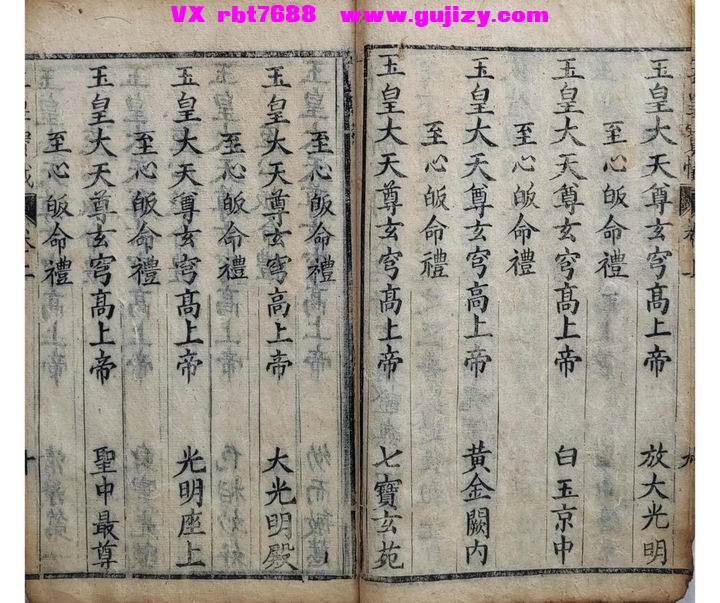 VX rbt7688 www.gujizy.com
玉皇大天尊玄穹髙上帝 放大光明
至心皈命禮
玉皇大天尊玄穹髙上帝 白玉京中
至心皈命禮
玉皇大天尊玄穹髙上帝 黄金闕内
至心皈命禮
玉皇大天尊玄穹髙上帝 七寶玄苑
至心皈命禮
玉皇大天尊玄穹髙上帝 大光明殿
至心皈命禮
玉皇大天尊玄穹髙上帝 光明座上
至心皈命禮
玉皇大天尊玄穹髙上帝 聖中最尊
至心皈命禮
十